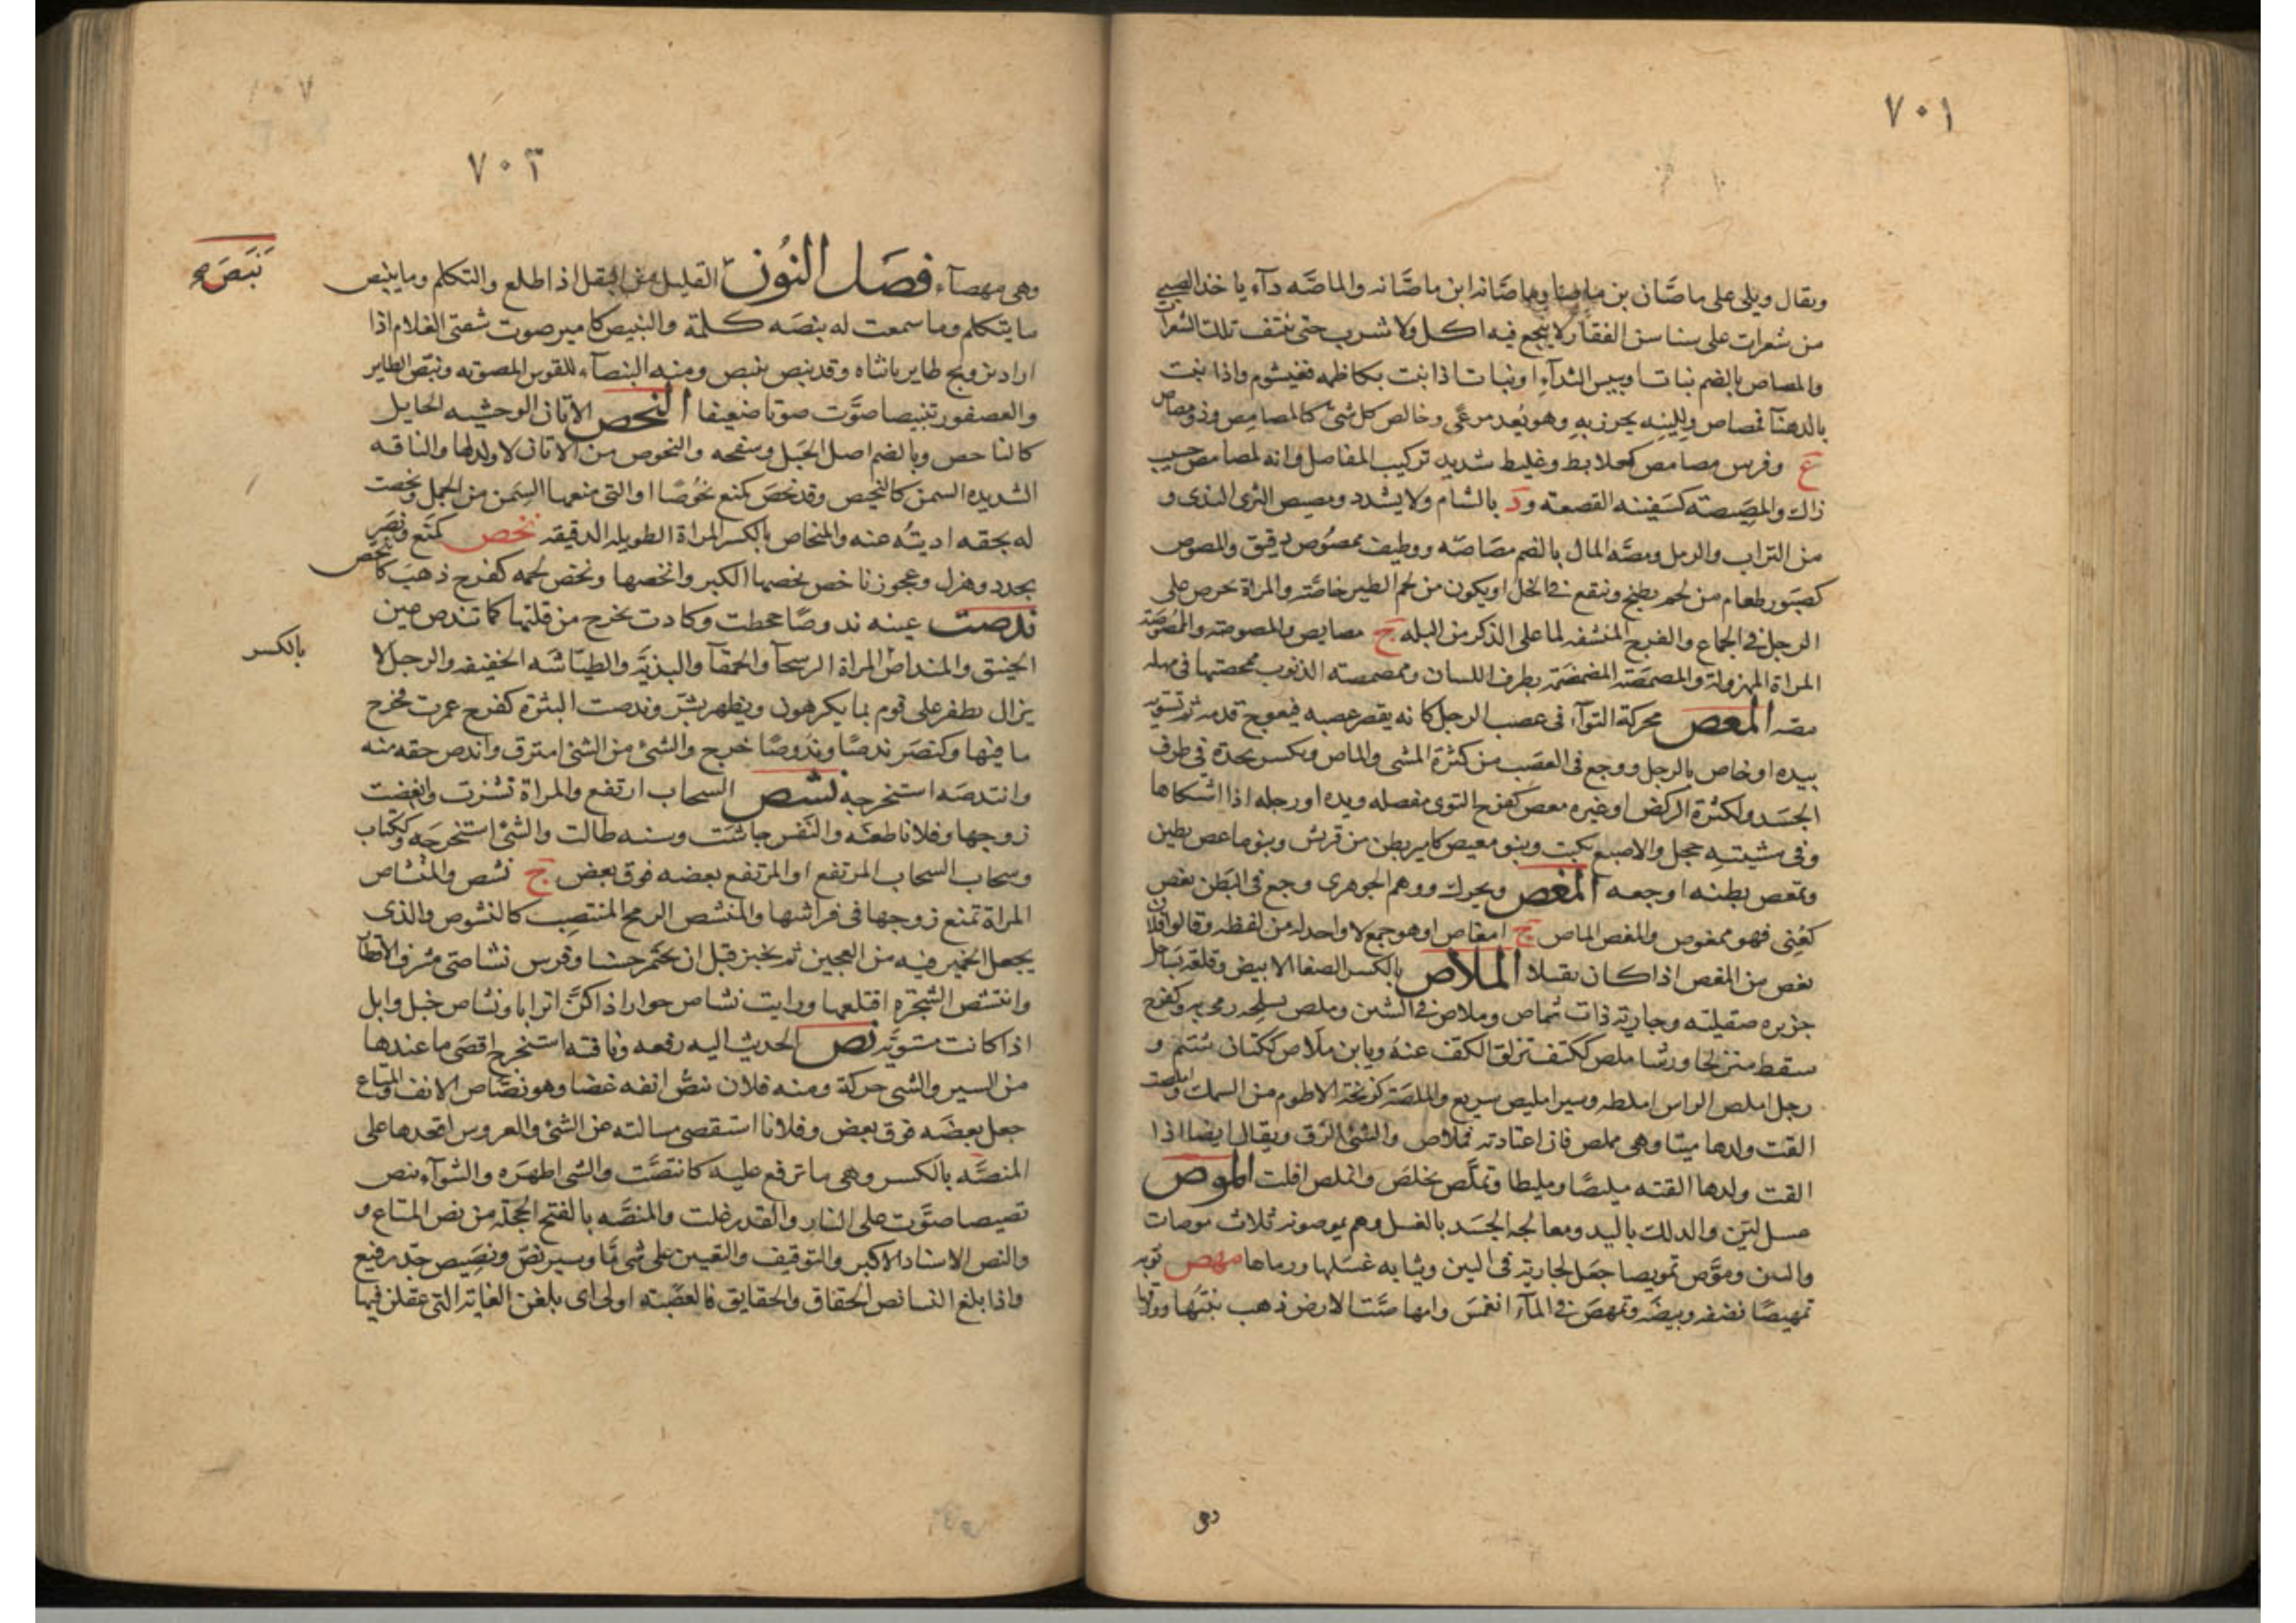 ٧٠١
ويقال ويلى على ماصَّان بن ماصان وماصَّانه ابن ماصَّانه والماصَّه دآء ياخذ الصبى
من شعرات على سناسن الفقار لا ينجع فيه اكل ولا شرب حتى تنتف تلك الشعرات
والمصاص بالضم نبات او يبيس الثدآء او نبات اذا نبت بكاظمه فقيشوم واذا نبت
بالدهنآ فمصاص ولِلِينِه يخرز به وهو يُعد مرعًى وخالص كل شئ كالمصامِص وذو مصاص
ع وفرس مصامص كعلابط وغليط شديد تركيب المفاصل وانه لمصامص حسب
ذاك والمصِيصته كسَفينه القصعة ود بالشام ولا يشدد ومصيص الثرى الندى و
من التراب والرمل ومصَّه المال بالضم مصَاصته ووظيف ممصُوص دقيق والمصوص
كصَبَور طعام من لحم يطبخ وينقع فى الخل او يكون من لحم الطير خاصَّه والمراة تحرص على
الرجل فى الجماع والفرج المنشفه لما على الذكر من البله ج مصايص والمصوصه والممْصُوصَة
المراة المهزولة والمصمصَة المضمضَة بطرف اللسان وممصمصته الذنوب ممحصتها فى مهله
مصه المعص محركة التوآء فى عصب الرجل كانه يقصر عصبه فيعوج قدمه ثم تسويه
بيده او خاص بالرجل ووجع فى العصَب من كثرة المشى والماص وبكسر يحدث فى طرف
الجسَد ولكثرة الركض او غيره معص كفرح التوى مفصله ويده او رجله اذا اشتكاها
وفى مشيتهِ حجل والاصبع نكبت وبنو معيص كامير بطن من قريش وبنو ماعص بطين
وتمعص بطنه اوجعه المغص ويحرك ووهم الجوهرى وجع فى البَطن مغص
كعُنِى فهو ممغوص والمغص الماص ج امغاص او هو جمع لا واحد له من لفظه وقالوا فلان
مغص من المغص اذا كان ثقيلا الملاص بالكسر الصفا الابيض وقلعة بسَاحل
جزيره صقيلته وجارية ذات شماص وملاص فى الشين وملص بسلحه رمى به وكفرح
سقط متزلجا ورشا ملص ككتف تزلق الكف عنه ويا بن ملاص ككتان شتم و
رجل املص الراس املطه وسير امليص سريع والملصَة كزنخة الاطوم من السمك واملصت
القت ولدها ميتا وهى مملص فان اعتادته فملاص والشئ ازلق ويقال ايضا اذا
القت ولدها القته مليصًا ومليطا وتملَّص تخلصَ وانملص افلت الموص
غسل لين والدلك باليد ومعالجه الجسَد بالغسل وهم يموصونه ثلاث موصات
والتبن وموَّص تمويصا جعَل تجارته فى التبن وثيابه غسَلها ورماها مهص ثوبه
تمهيصًا نضفه وبيضَه وتمهصَ فى المآء انغمسَ وامهاصَّت الارض ذهب نبتُها وورقها
وهى
٧٠٢
نَبَصَ صح
وهى مهصآء فصَل النُون القليل من البقل اذا طلع والتكلم وما ينبص
ما يتكلم وما سمعت له نبصَه كلمة والنبيص كامير صوت شفتى الغلام اذا
اراد تزويج طاير بانثاه وقد نبص ينبص ومنه النبصآء للقوس المصوته ونبّص الطاير
والعصفور تنبيصا صوَّت صوتا ضعيفا النحص الاتان الوحشيه الحايل
كالناحص وبالضم اصل الجبَل وسفحه والنحوص من الاتان لا ولد لها والناقه
الشديده السمن كالنحيص وقد نحصَ كمنع نحُوصًا او التى منعها السِمَن من الحمل ونحصت
له بحقه اديته عنه والمنحاص بالكسر المراة الطويله الدقيقه نخص كمنَع ونصَر
تخدد وهزل وعجوز ناخص نخصها الكبر وانخصها ونخص لحمه كفرح ذهبَ كانتخص
ندصت عينه ندوصًا جحظت وكادت تخرج من قلتها كما تندص عين
الخنيق والمنداص المراة الرسحآ والحمقآ والبذيَّه والطيّاشه الخفيفه والرجل لا
بالكسر
يزال يطفر على قوم بما يكرهون ويظهر بشرّ وندصت البثرة كفرح غمزت فخرج
ما فيها وكنصَر ندصًا وندُوصًا خرج والشئ من الشئ امترق واندص حقه منه
وانتدصه استخرجه نشص السحاب ارتفع والمراة نشزت وابغضت
زوجها وفلانا طعنَه والنفس جاشَت وسنه طالت والشئ استخرجَه وككتاب
وسحاب السحاب المرتفع او المرتفع بعضه فوق بعض ج نشص والمنشاص
المراة تمنع زوجها فى فراشها والمنشص الرمح المنتصِب كالنشوص والذى
يجعل الخمير فيه من العجين ثم يخبز قبل ان يختمر حسنا وفرس نشاصى مشرف الاقطار
وانتشص الشجرة اقتلعها ورايت نشاص حوار اذا كنّ اترابا ونشاص خيل وابل
اذا كانت مستويَّه نص الحديث اليه رفعه وناقته استخرج اقصَى ما عندها
من السير والشى حركة ومنه فلان ينصُّ انفه غضبا وهو نصَّاص الانف والمتاع
جعل بعضَه فوق بعض وفلانا استقصى مسالته عن الشئ والعروس اقعدها على
المنصَّه بالكسر وهى ما ترفع عليه كانتصَّت والشى اظهَره والشوآء ينص
نصيصا صوَّت على النار والقدر غلت والمنصَّه بالفتح الحجله من نص المتاع و
والنص الاسناد الاكبر والتوقيف والتعيين على شى مَّا وسير نصّ ونصِيص جدّ رفيع
واذا بلغ النسا نص الحقاق والحقايق فالعصَبته اولى اى بلغن الغاية التى عقلن فيها